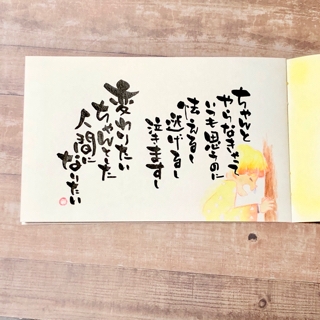 ちゃんと
やらなきゃって
いつも思うのに
怯えるし
逃げるし
泣きますし
変わりたい
ちゃんとした
人間に
なりたい